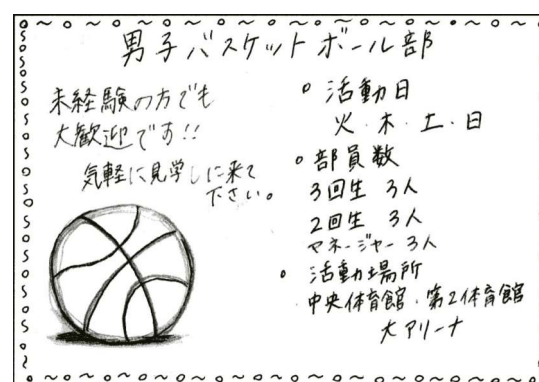 男子バスケットボール部
未経験の方でも
大歓迎です!!
気軽に見学しに来て
下さい。
○ 活動日
火・木・土・日
○ 部員数
3回生 3人
2回生 3人
マネージャー 3人
○ 活動場所
中央体育館・第2体育館
大アリーナ